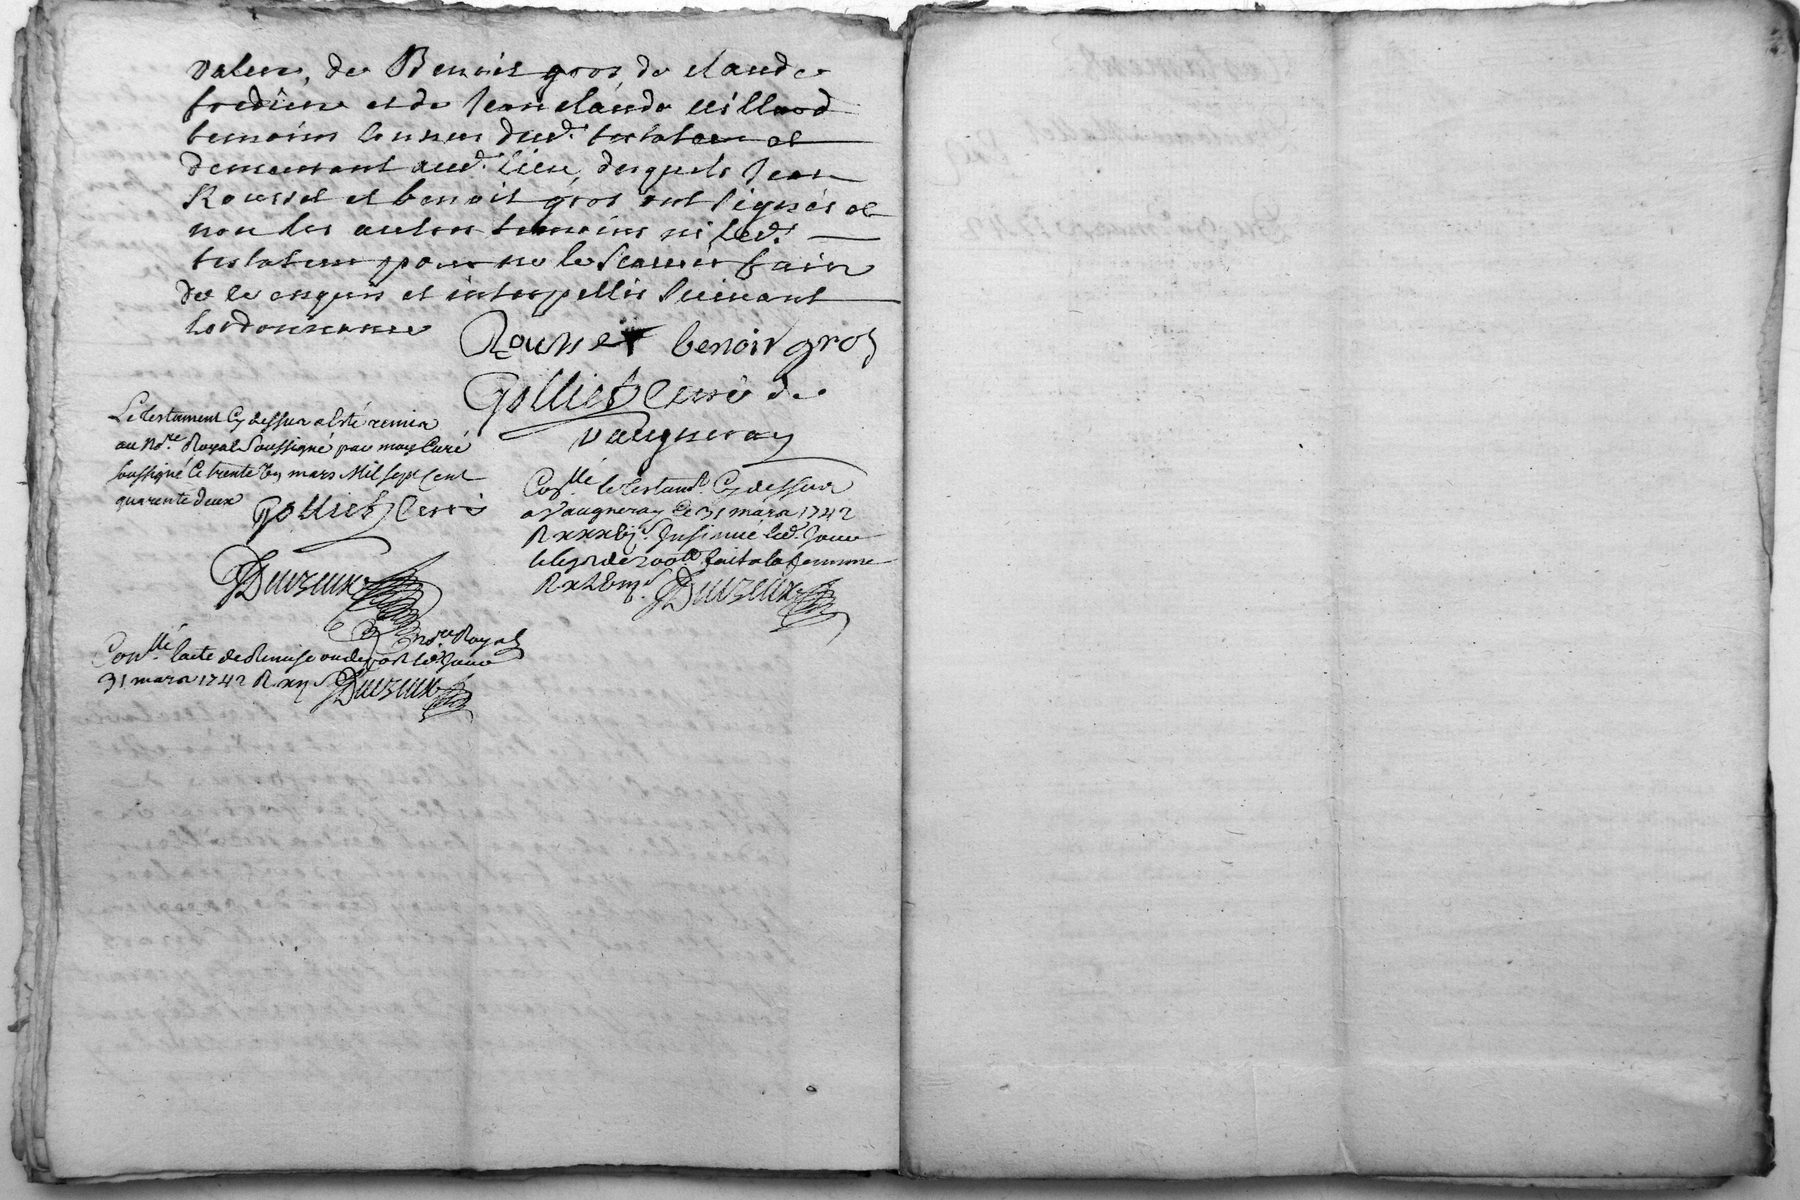 valeur, de Benoit gros, de claude
fredière et de Jean claude villard
temoins connus dud. testateur et
demeurant aud. lieu, desquels Jean
Rousset et benoit gros ont signés et
non les autres temoins ni led.
testateur pour ne le scavoir faire
de ce enquis et interpellés suivant
lordonnance
Rousset benoit gros
Golliet Curé de
vaugneray
Le testament Cy dessus a esté remis
au No.re Royal Soussigné par moy Curé
soussigné Ce trente Un mars Mil Sept Cent
quarente deux
Golliet Curé
Duvzeux
no.re Royal
Con.llé le testam.t Cy dessus
a Vaugneray Le 31 mars 1742
Insinué led. Jour
le legs de 200ll fait a la femme
Duvzeux
Con.llé lacte de Remise led. Jour
31 mars 1742 R
Duvzeux